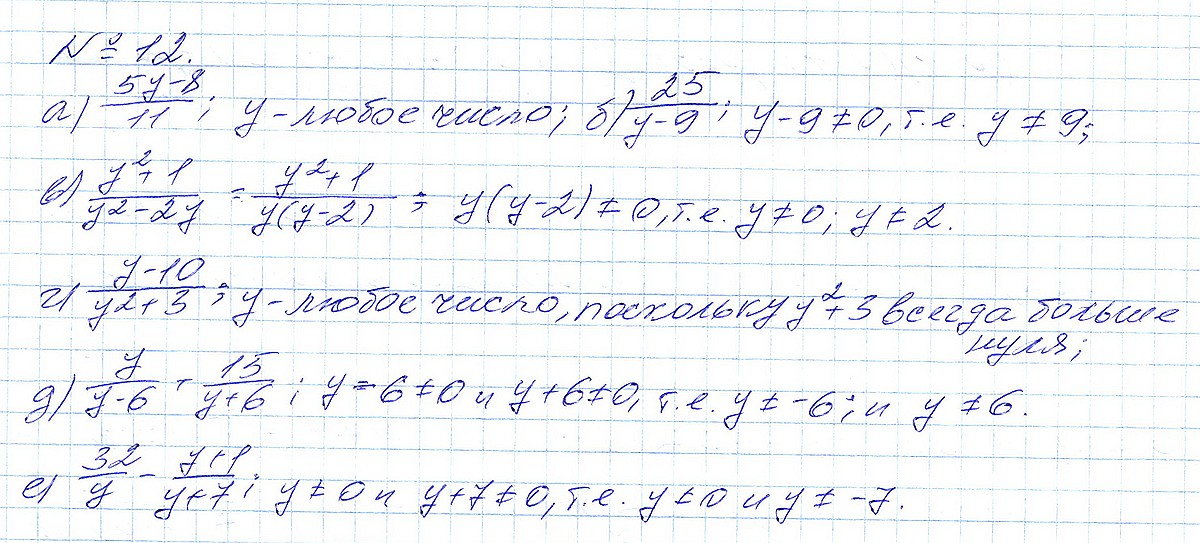 № 12.
а) (5y-8)/11; y - любое число; б) 25/(y-9); y-9≠0, т.е. y ≠ 9;
в) (y²+1)/(y²-2y) = (y²+1)/(y(y-2)); y(y-2) ≠ 0, т.е. y≠0; y ≠ 2.
г) (y-10)/(y²+3); y - любое число, поскольку y²+3 всегда больше
нуля;
д) y/(y-6) + 15/(y+6); y - 6≠0 и y+6≠0, т.е. y ≠ -6; и y ≠ 6.
е) 32/y - (y+1)/(y+7); y ≠ 0 и y+7≠0, т.е. y≠0 и y ≠ -7.